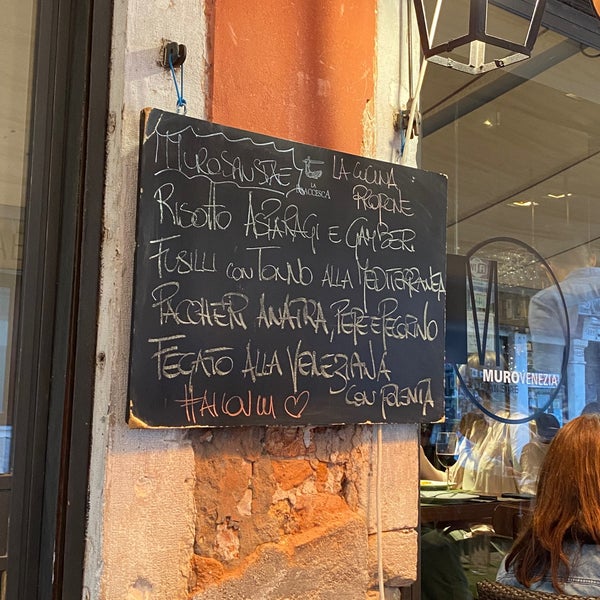 MUROSANSTAE LA BACCESCA LA CUCINA PROPONE
RISOTTO ASPARAGI E GAMBERI
FUSILLI CON TONNO ALLA MEDITERRANEA
PACCHERI ANATRA, PEPE E PECORINO
FEGATO ALLA VENEZIANA
CON POLENTA
MUROVENEZIA